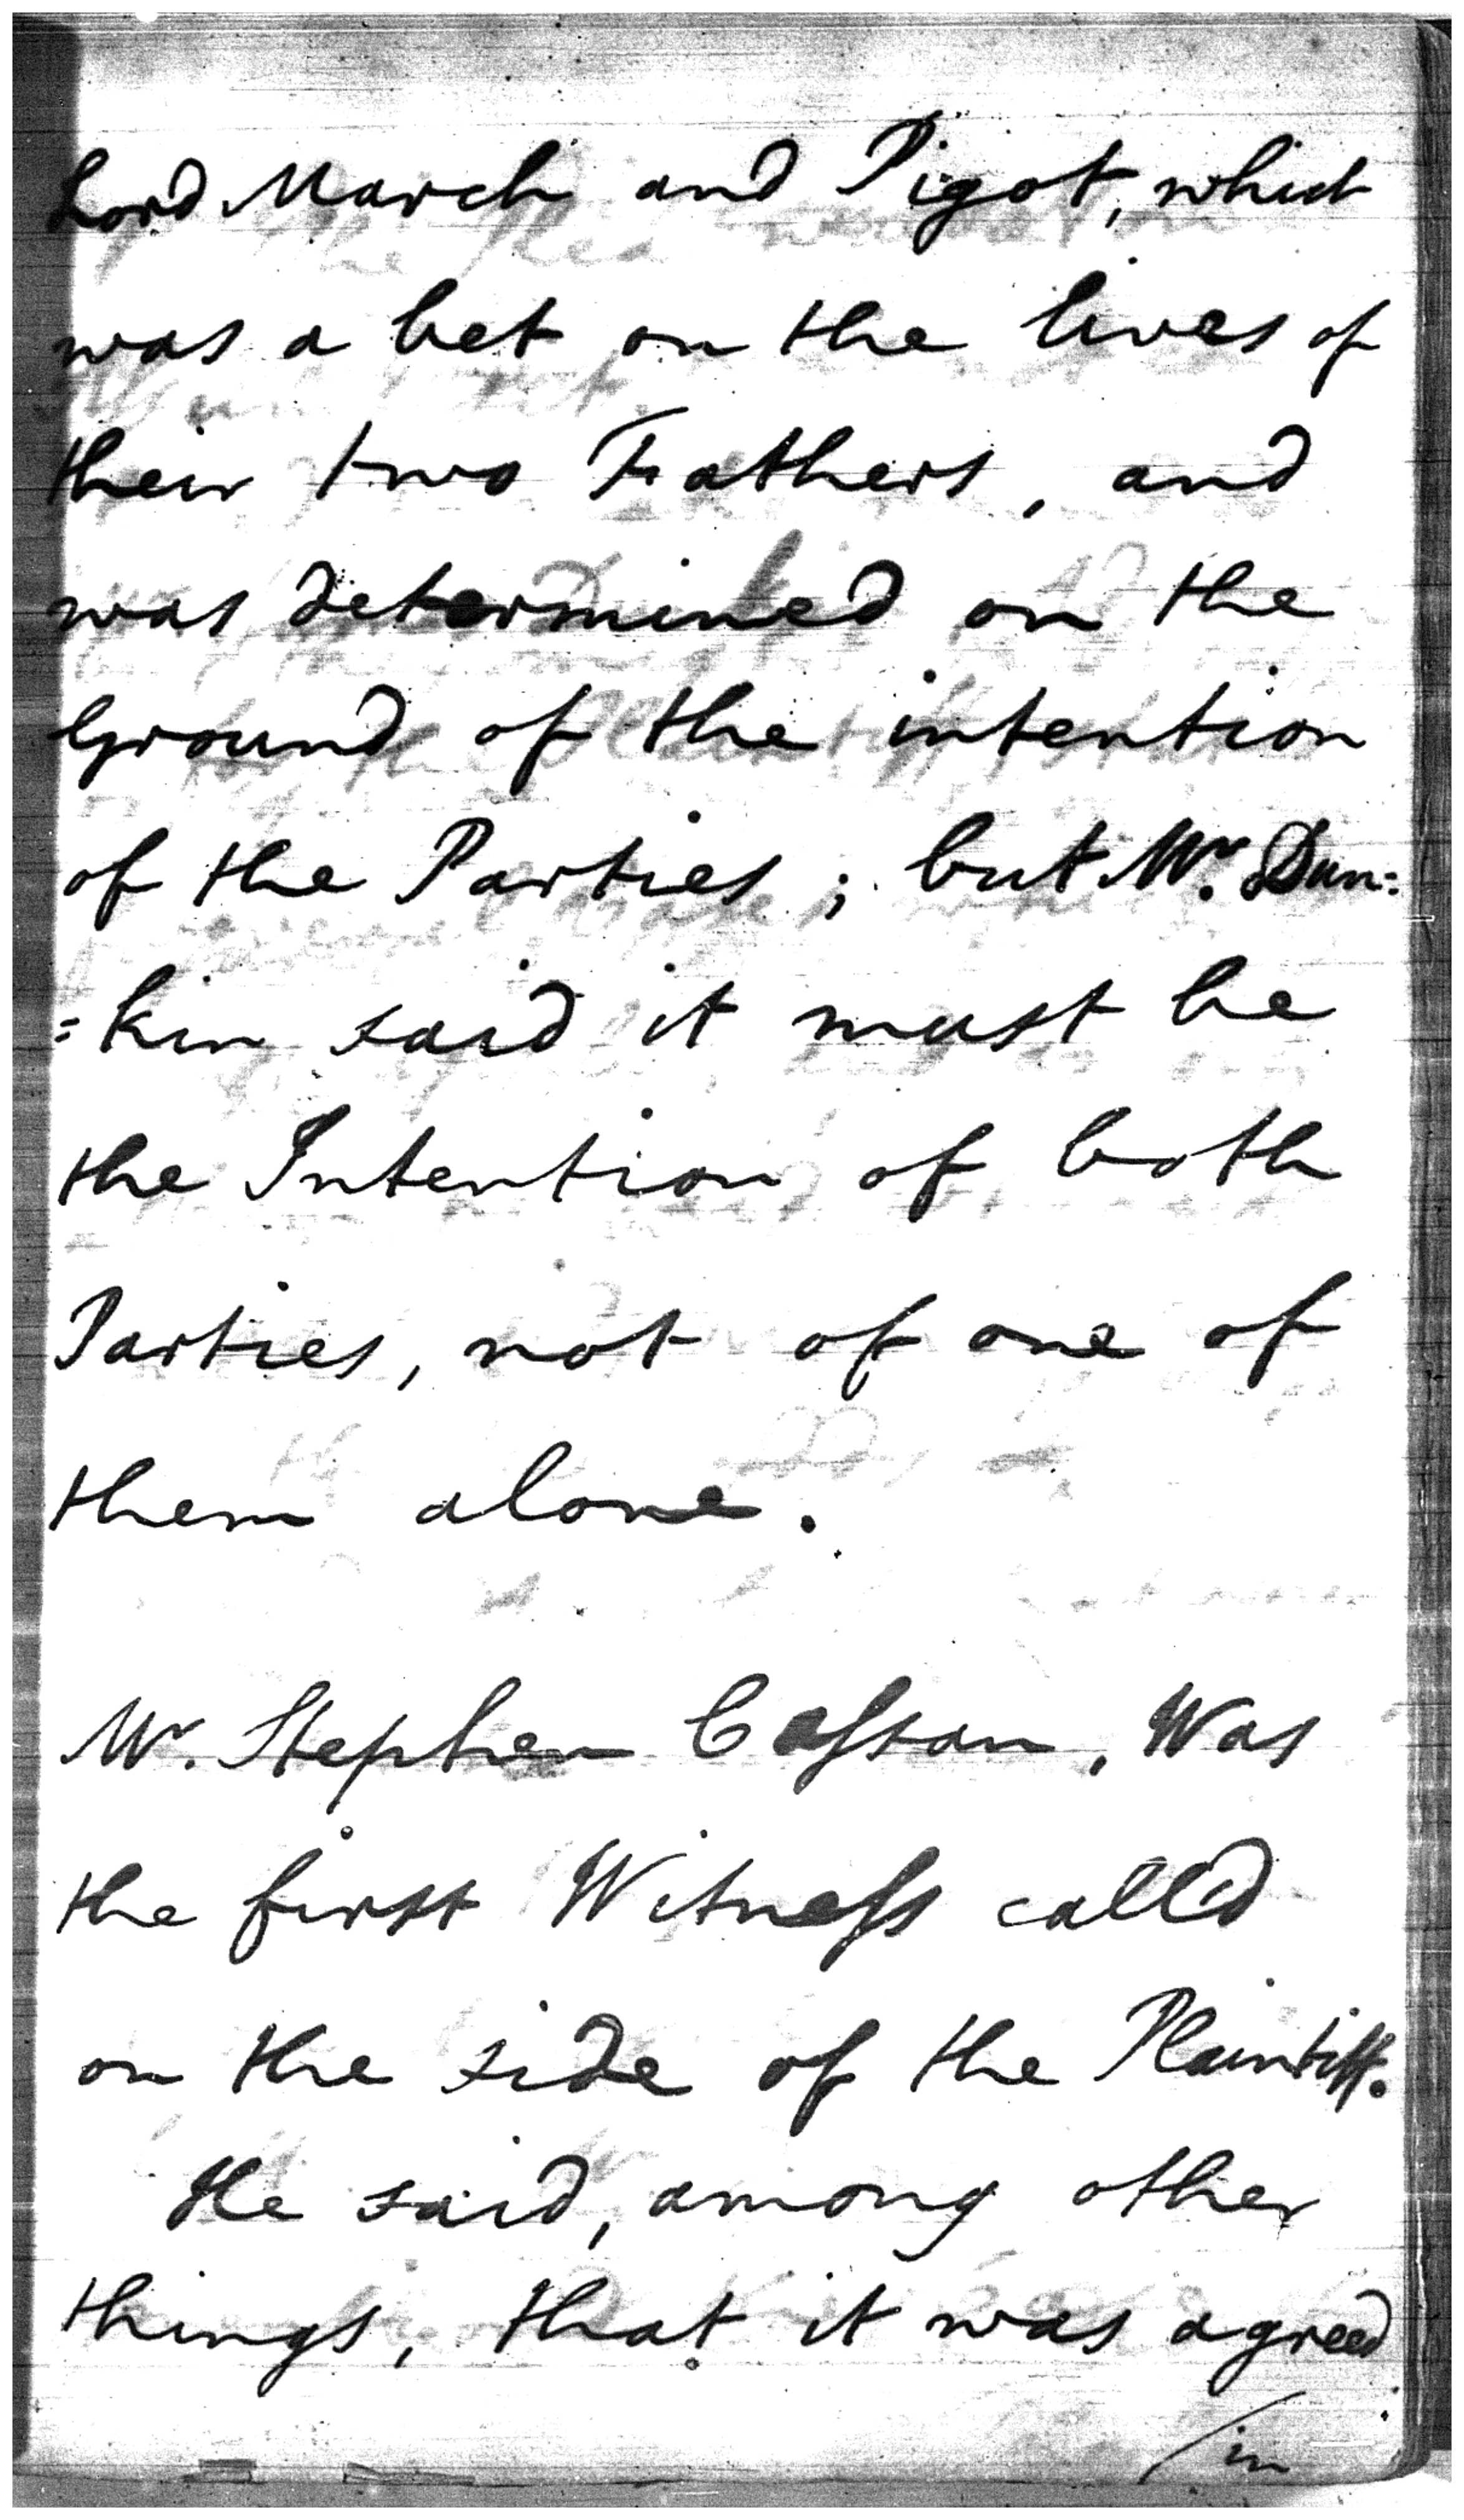 Lord March and Pigot, which
was a bet on the lives of
their two Fathers, and
was determined on the
Ground of the intention
of the Parties; but Mr. Dun:
=kin said it must be
the Intention of both
Parties, not of one of
them alone.
Mr. Stephen Casſan, Was
the first Witneſs call'd
on the side of the Plaintiff.
He said, among other
things, that it was agreed
/in